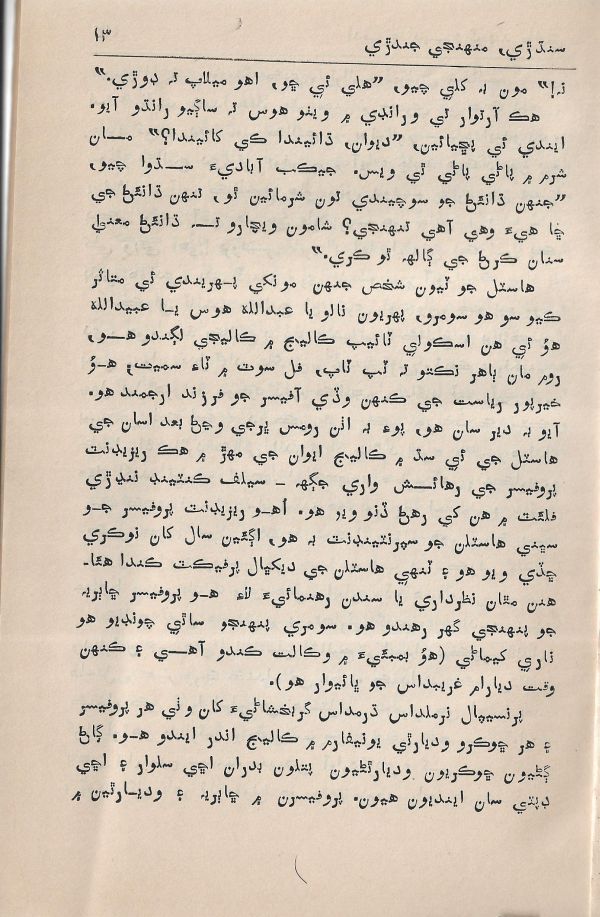 سنڌڙي، منهنجي جندڙي ١٣
نہ!” مون بہ کلي چيو، “هلي ئي ڇو، اهو ميلاپ تہ ڊوڙي.”
هڪ آرتوار تي ورانڊي ۾ ويٺو هوس تہ ساڳيو رانڌو آيو.
ايندي ئي پڇيائين، “ديوان، ڌائيندا کي کائيندا؟” مـان
شرم ۾ پاڻي پاڻي ٿي ويس. جيڪب آباديءَ سـڌوا چيو،
“جنهن ڌائڻ جو سوچيندي تون شرمائين ٿو، تنهن ڌائڻ جي
ڇا هيءَ وهي آهي تنهنجي؟ شامون ويچارو تـہ ڌائڻ معنيٰ
سنان ڪرڻ جي ڳالهہ ٿو ڪري.”
هاسٽل جو ٽيون شخص جنهن مونکي پـهريندي ئي متاثر
ڪيو سو هو سومرو، پهريون نالو يا عبدالله هوس يـا عبيدالله
هوُ ئي هن اسڪولي ٽائيپ ڪاليج ۾ ڪاليجي لڳندو هـو،
روم مان ٻاهر نڪتو تہ ٽپ ٽاپ، فل سوٽ ۾ ٽاءِ سميت، هـوُ
خيرپور رياست جي ڪنهن وڏي آفيسر جو فرزند ارجمند هو.
آيو بہ دير سان هو، پوءِ بہ انن رومس ڀرجي وڃڻ بعد اسان جي
هاسٽل جي ئي سڌ ۾ ڪاليج ايوان جي مهڙ ۾ هڪ ريزيڊنٽ
پروفيسر جي رهائـش واري جڳهہ ـ سيلف ڪنٽينڊ ننڍڙي
فلئٽ ۾ هن کي رهڻ ڏنو ويو هو. اُهـو ريزيڊنٽ پروفيسر جـو
سڀني هاسٽلن جو سپرنٽينڊنٽ بہ هو، اڳئين سال کان نوڪري
ڇڏي ويو هو ۽ ٽنهي هاسٽلن جي ديکڀال پرفيڪٽ ڪندا هئا.
هنن مٿان نظرداري يا سندن رهنمائيءَ لاءِ هـو پروفيسر ڇاٻريہ
جو پنهنجي گهر رهندو هو. سومري پنهنجو ساٿي چونڊيو هو
ناري کيماڻي (هوُ بمبئيءَ ۾ وڪالت ڪندو آهـي ۽ ڪنهن
وقت ديارام غريبداس جو ڀائيوار هو).
پرنسيپال نرملداس ڌرمداس گربخشاڻيءَ کان وٺي هر پروفيسر
۽ هر ڇوڪرو وديارٿي يونيفارم ۾ ڪاليج اندر ايندو هـو. ڳاڻ
ڳڻيون ڇوڪريون وديارٿڻيون پتلون بدران اڇي سلوار ۽ اڇي
ڊپٽي سان اينديون هيون. پروفيسرن ۾ ڇاٻريہ ۽ وديـارٿين ۾